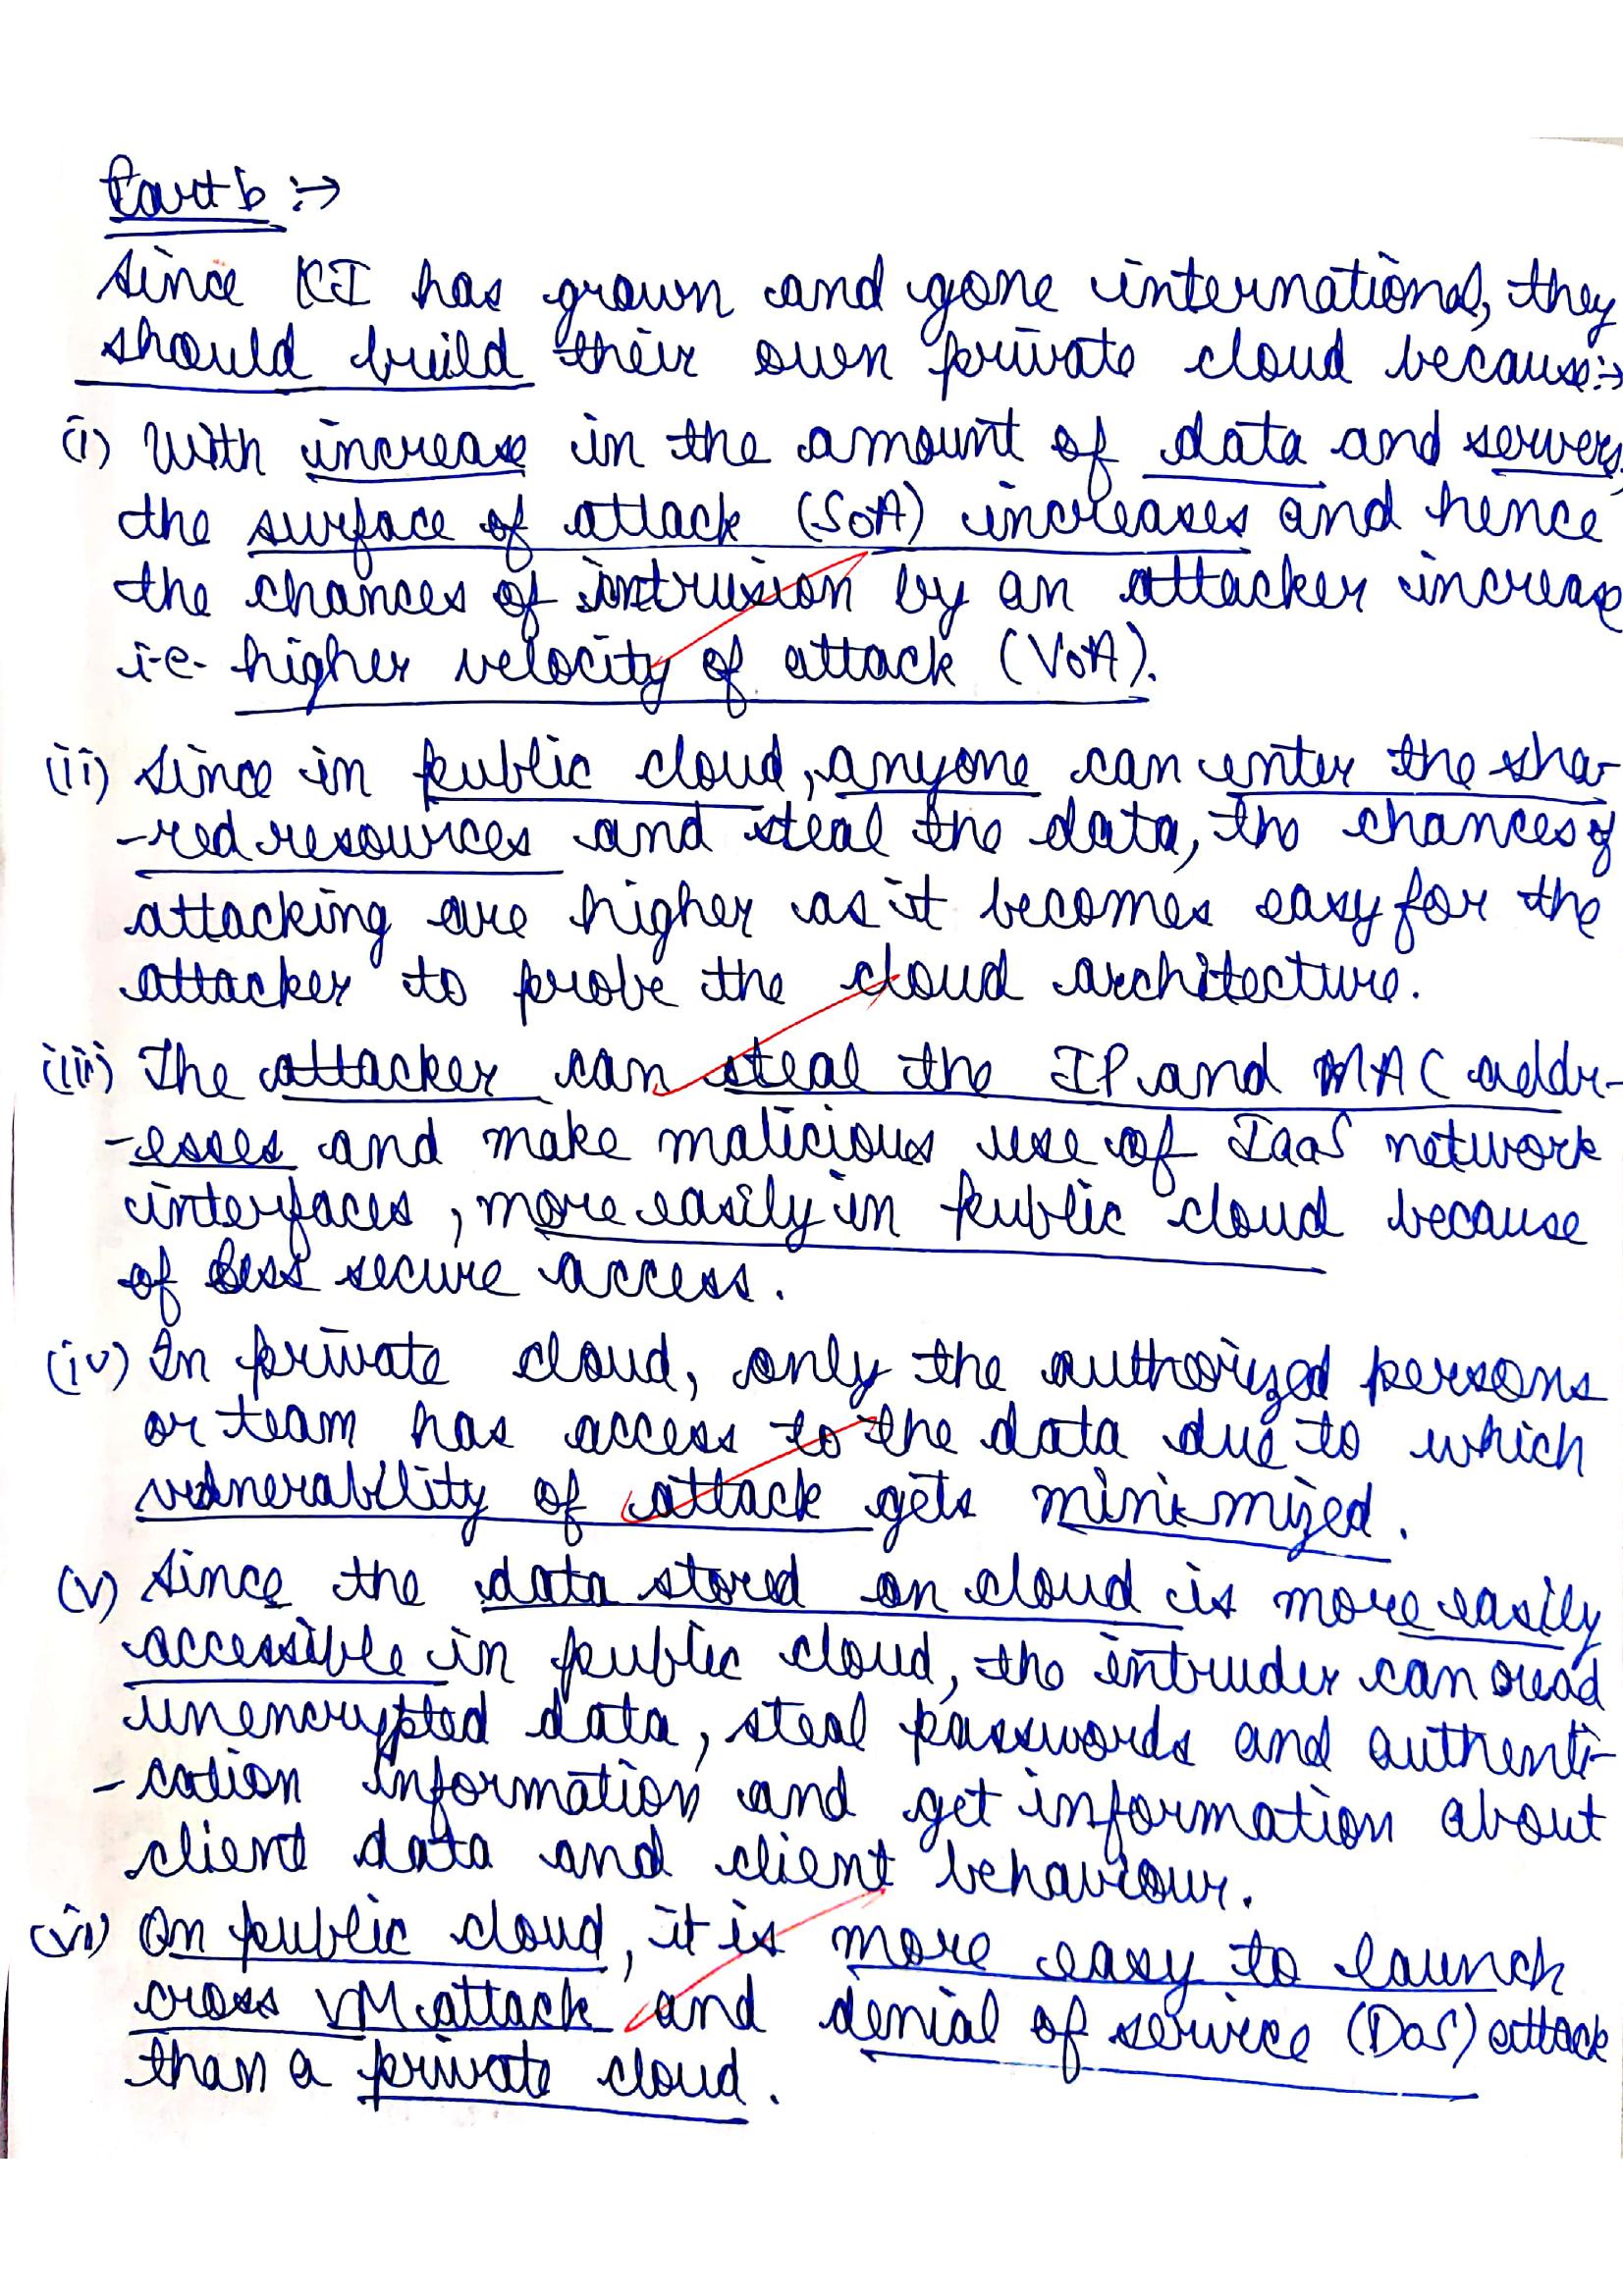 Part b :→
Since KI has grown and gone international, they
should build their own private cloud because:→
(i) With increase in the amount of data and servers,
the surface of attack (SoA) increases and hence
the chances of intrusion by an attacker increase
i.e. higher velocity of attack (VoA).
(ii) Since in public cloud, anyone can enter the sha-
-red resources and steal the data, the chances of
attacking are higher as it becomes easy for the
attacker to probe the cloud architecture.
(iii) The attacker can steal the IP and MAC addr-
-esses and make malicious use of IaaS network
interfaces, more easily in public cloud because
of less secure access.
(iv) In private cloud, only the authorized persons
or team has access to the data due to which
vulnerability of attack gets minimized.
(v) Since the data stored on cloud is more easily
accessible in public cloud, the intruder can read
unencrypted data, steal passwords and authenti-
-cation information and get information about
client data and client behaviour.
(vi) On public cloud, it is more easy to launch
cross VM attack and denial of service (DoS) attack
than a private cloud.